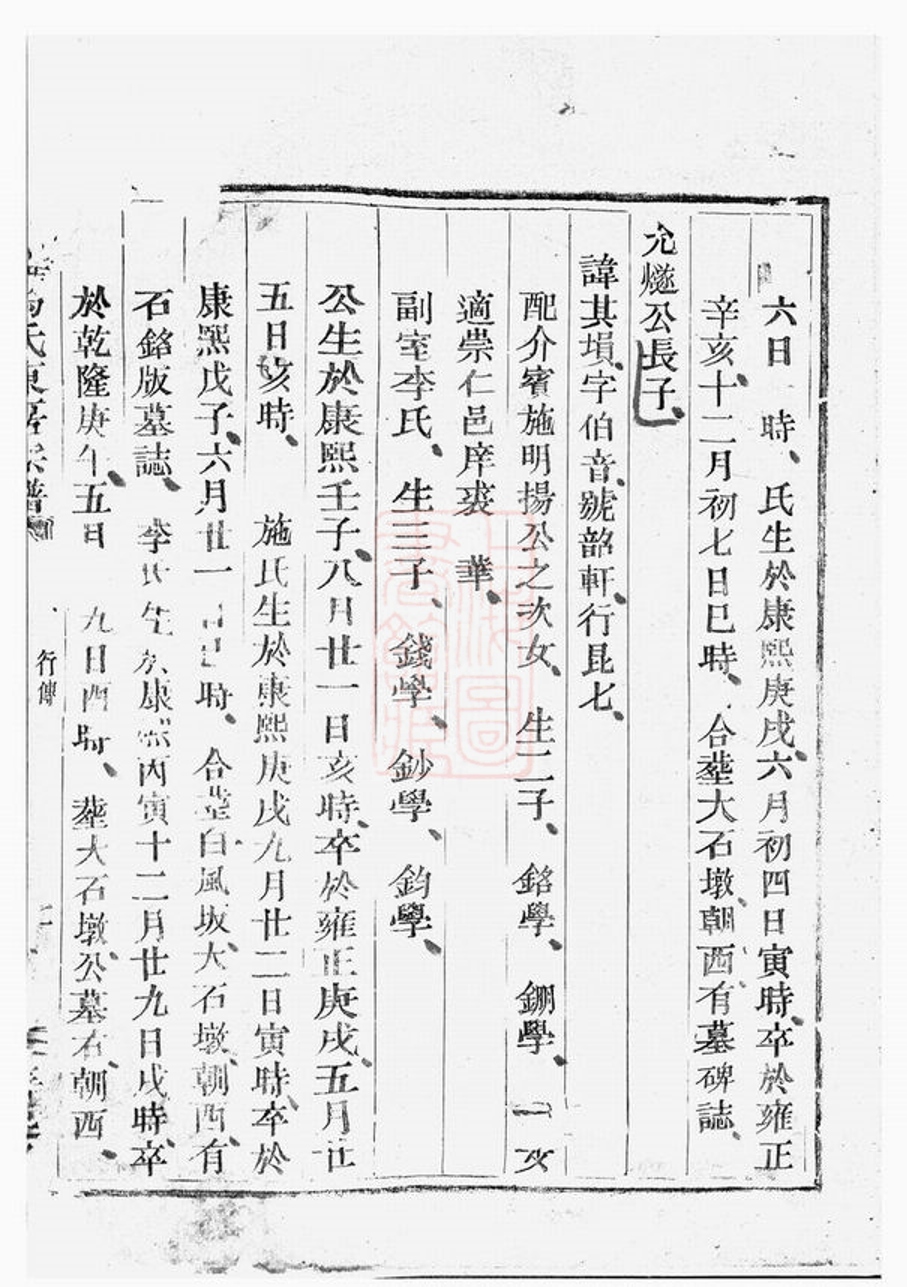 六日　時、氏生於康熙庚戌、六月初四日寅時、卒於雍正
辛亥、十二月初七日巳時、合塟大石墩、朝西、有墓碑誌、
元爕公長子、
諱其塤、字伯音、號韶軒、行昆七、
配介賓施明揚公之次女、生二子、銘學、鎙學、一女
適崇仁邑庠裘　華、
副室李氏、生三子、錢學、鈔學、鈞學、
公生於康熙壬子、八月廿一日亥時、卒於雍正庚戌、五月廿
五日亥時、　施氏生於康熙庚戌九月廿二日寅時、卒於
康熙戊子、六月廿一日巳時、合塟白風坂、大石墩、朝西、有
石銘版墓誌、李氏生於康熙丙寅十二月廿九日戌時、卒
於乾隆庚午、五月　九日酉時、塟大石墩、公墓右、朝西、
氏東房宗譜
行傳